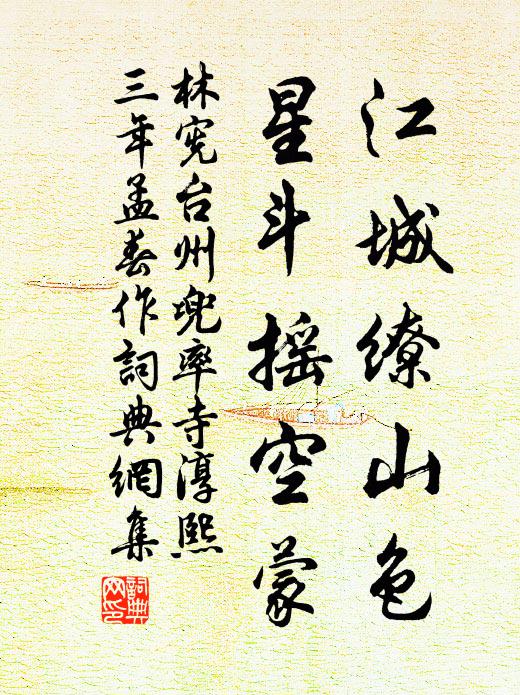 江城繚山色
星斗摇空蒙
林宪台州兜率寺淳熙
三年孟春作詞典網集
詞典
网印